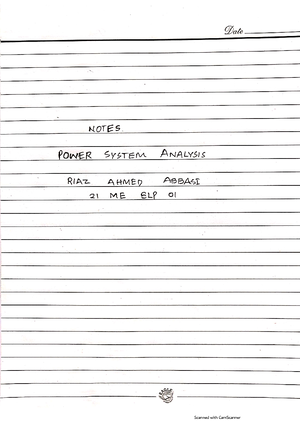 Date
NOTES
POWER SYSTEM ANALYSIS
RIAZ AHMED ABBASI
21 ME ELP 01
Scanned with CamScanner